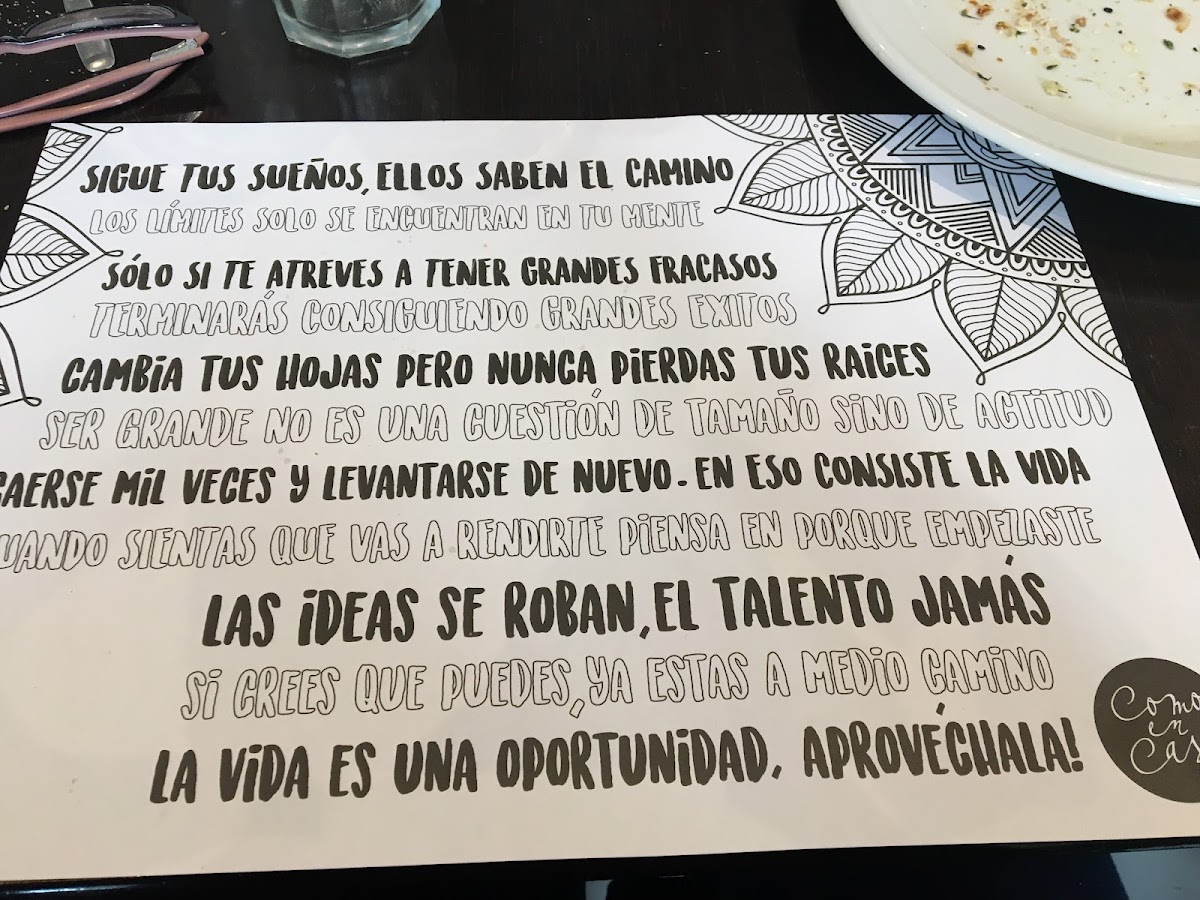 SIGUE TUS SUEÑOS, ELLOS SABEN EL CAMINO
LOS LÍMITES SOLO SE ENCUENTRAN EN TU MENTE
SÓLO SI TE ATREVES A TENER GRANDES FRACASOS
TERMINARÁS CONSIGUIENDO GRANDES EXITOS
CAMBIA TUS HOJAS PERO NUNCA PIERDAS TUS RAICES
SER GRANDE NO ES UNA CUESTIÓN DE TAMAÑO SINO DE ACTITUD
CAERSE MIL VECES Y LEVANTARSE DE NUEVO. EN ESO CONSISTE LA VIDA
UANDO SIENTAS QUE VAS A RENDIRTE PIENSA EN PORQUE EMPEZASTE
LAS IDEAS SE ROBAN, EL TALENTO JAMÁS
SI CREES QUE PUEDES, YA ESTAS A MEDIO CAMINO
LA VIDA ES UNA OPORTUNIDAD, APROVÉCHALA!
Como
en
Cas